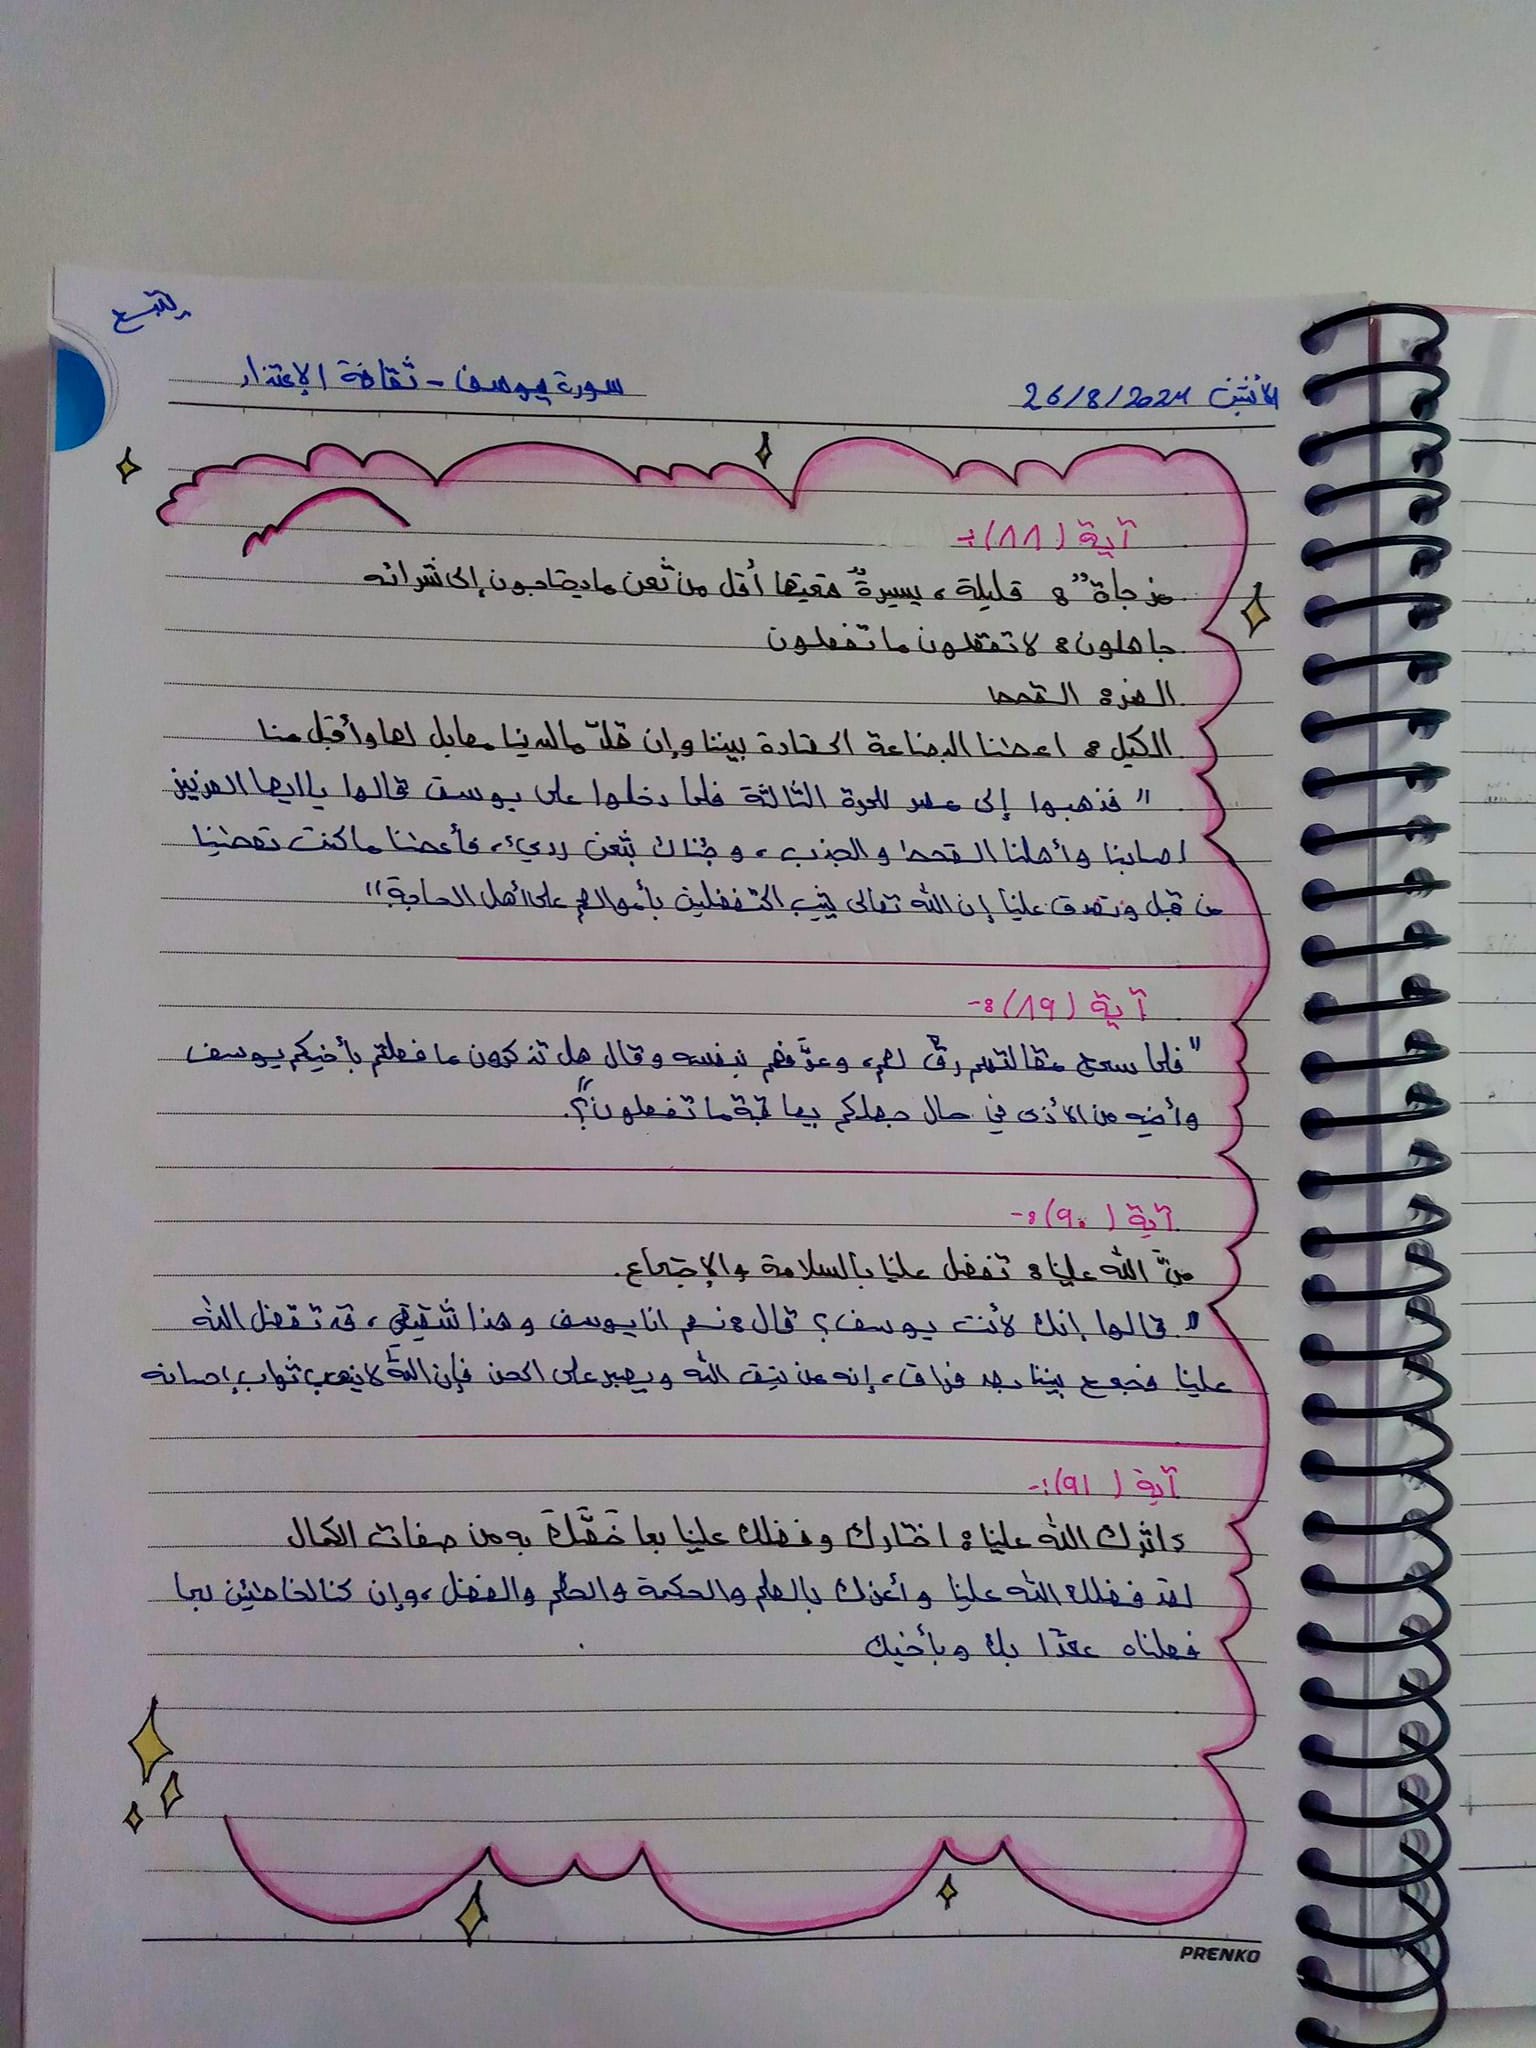 الأثنين 26/8/2024
سورة يوسف - ثقافة الإعتذار
آية (٨٨) :-
مزجاة" : قليلة ، يسيرةٌ قيمتها أقل من ثمن ما يحتاجون إلى شرائه
جاهلون : لا تعقلون ما تفعلون
الضر : القحط
الكيل : اعطنا البضاعة المعتادة بيننا وإن قلّ مالدينا مقابل لها وأقبل منا
" فذهبوا إلى مصر للمرة الثالثة فلما دخلوا على يوسف قالوا يا ايها العزيز
اصابنا وأهلنا القحط والجدب ، وجئناك بثمن رديء ، فأعطنا ما كنت تعطينا
من قبل وتصدق علينا إن الله تعالى يثيب المتفضلين بأموالهم على أهل الحاجة "
آية (٨٩) :-
" فلما سمع مقالتهم رقّ لهم ، وعرَّفهم بنفسه وقال هل تذكرون ما فعلتم بأخيكم يوسف
وأخيه من الأذى في حال جهلكم بعاقبة ما تفعلون "؟.
آية (٩٠) :-
منَّ الله علينا : تفضل علينا بالسلامة والإجتماع .
" قالوا إنك لأنت يوسف ؟ قال : نعم انا يوسف وهذا شقيقي ، قد تفضل الله
علينا فجمع بيننا بعد فراق ، إنه من يتق الله ويصبر على المحن فإن اللهَ لا يذهب ثواب إحسانه
آية (٩١) :-
ءاثرك الله علينا : اختارك وفضلك علينا بما خصَّكَ به من صفات الكمال
لقد فضلك الله علينا وأعزك بالعلم والحكمة والحلم والفضل ، وإن كنا لخاطئين بما
فعلناه عمدًا بك وبأخيك
PRENKO